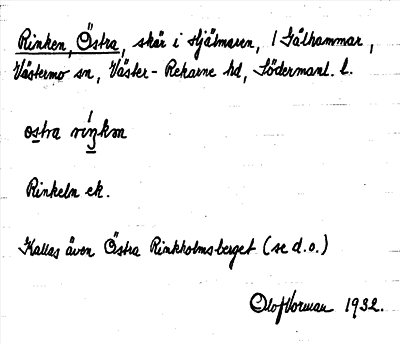 Rinken, Östra, skär i Hjälmaren, / Gålhammar,
Västermo sn, Väster-Rekarne hd, Södermanl. l.
ostra riŋkən
Rinkeln ek.
Kallas även Östra Rinkholmsberget (se d.o.)
Olof Vorman 1932.